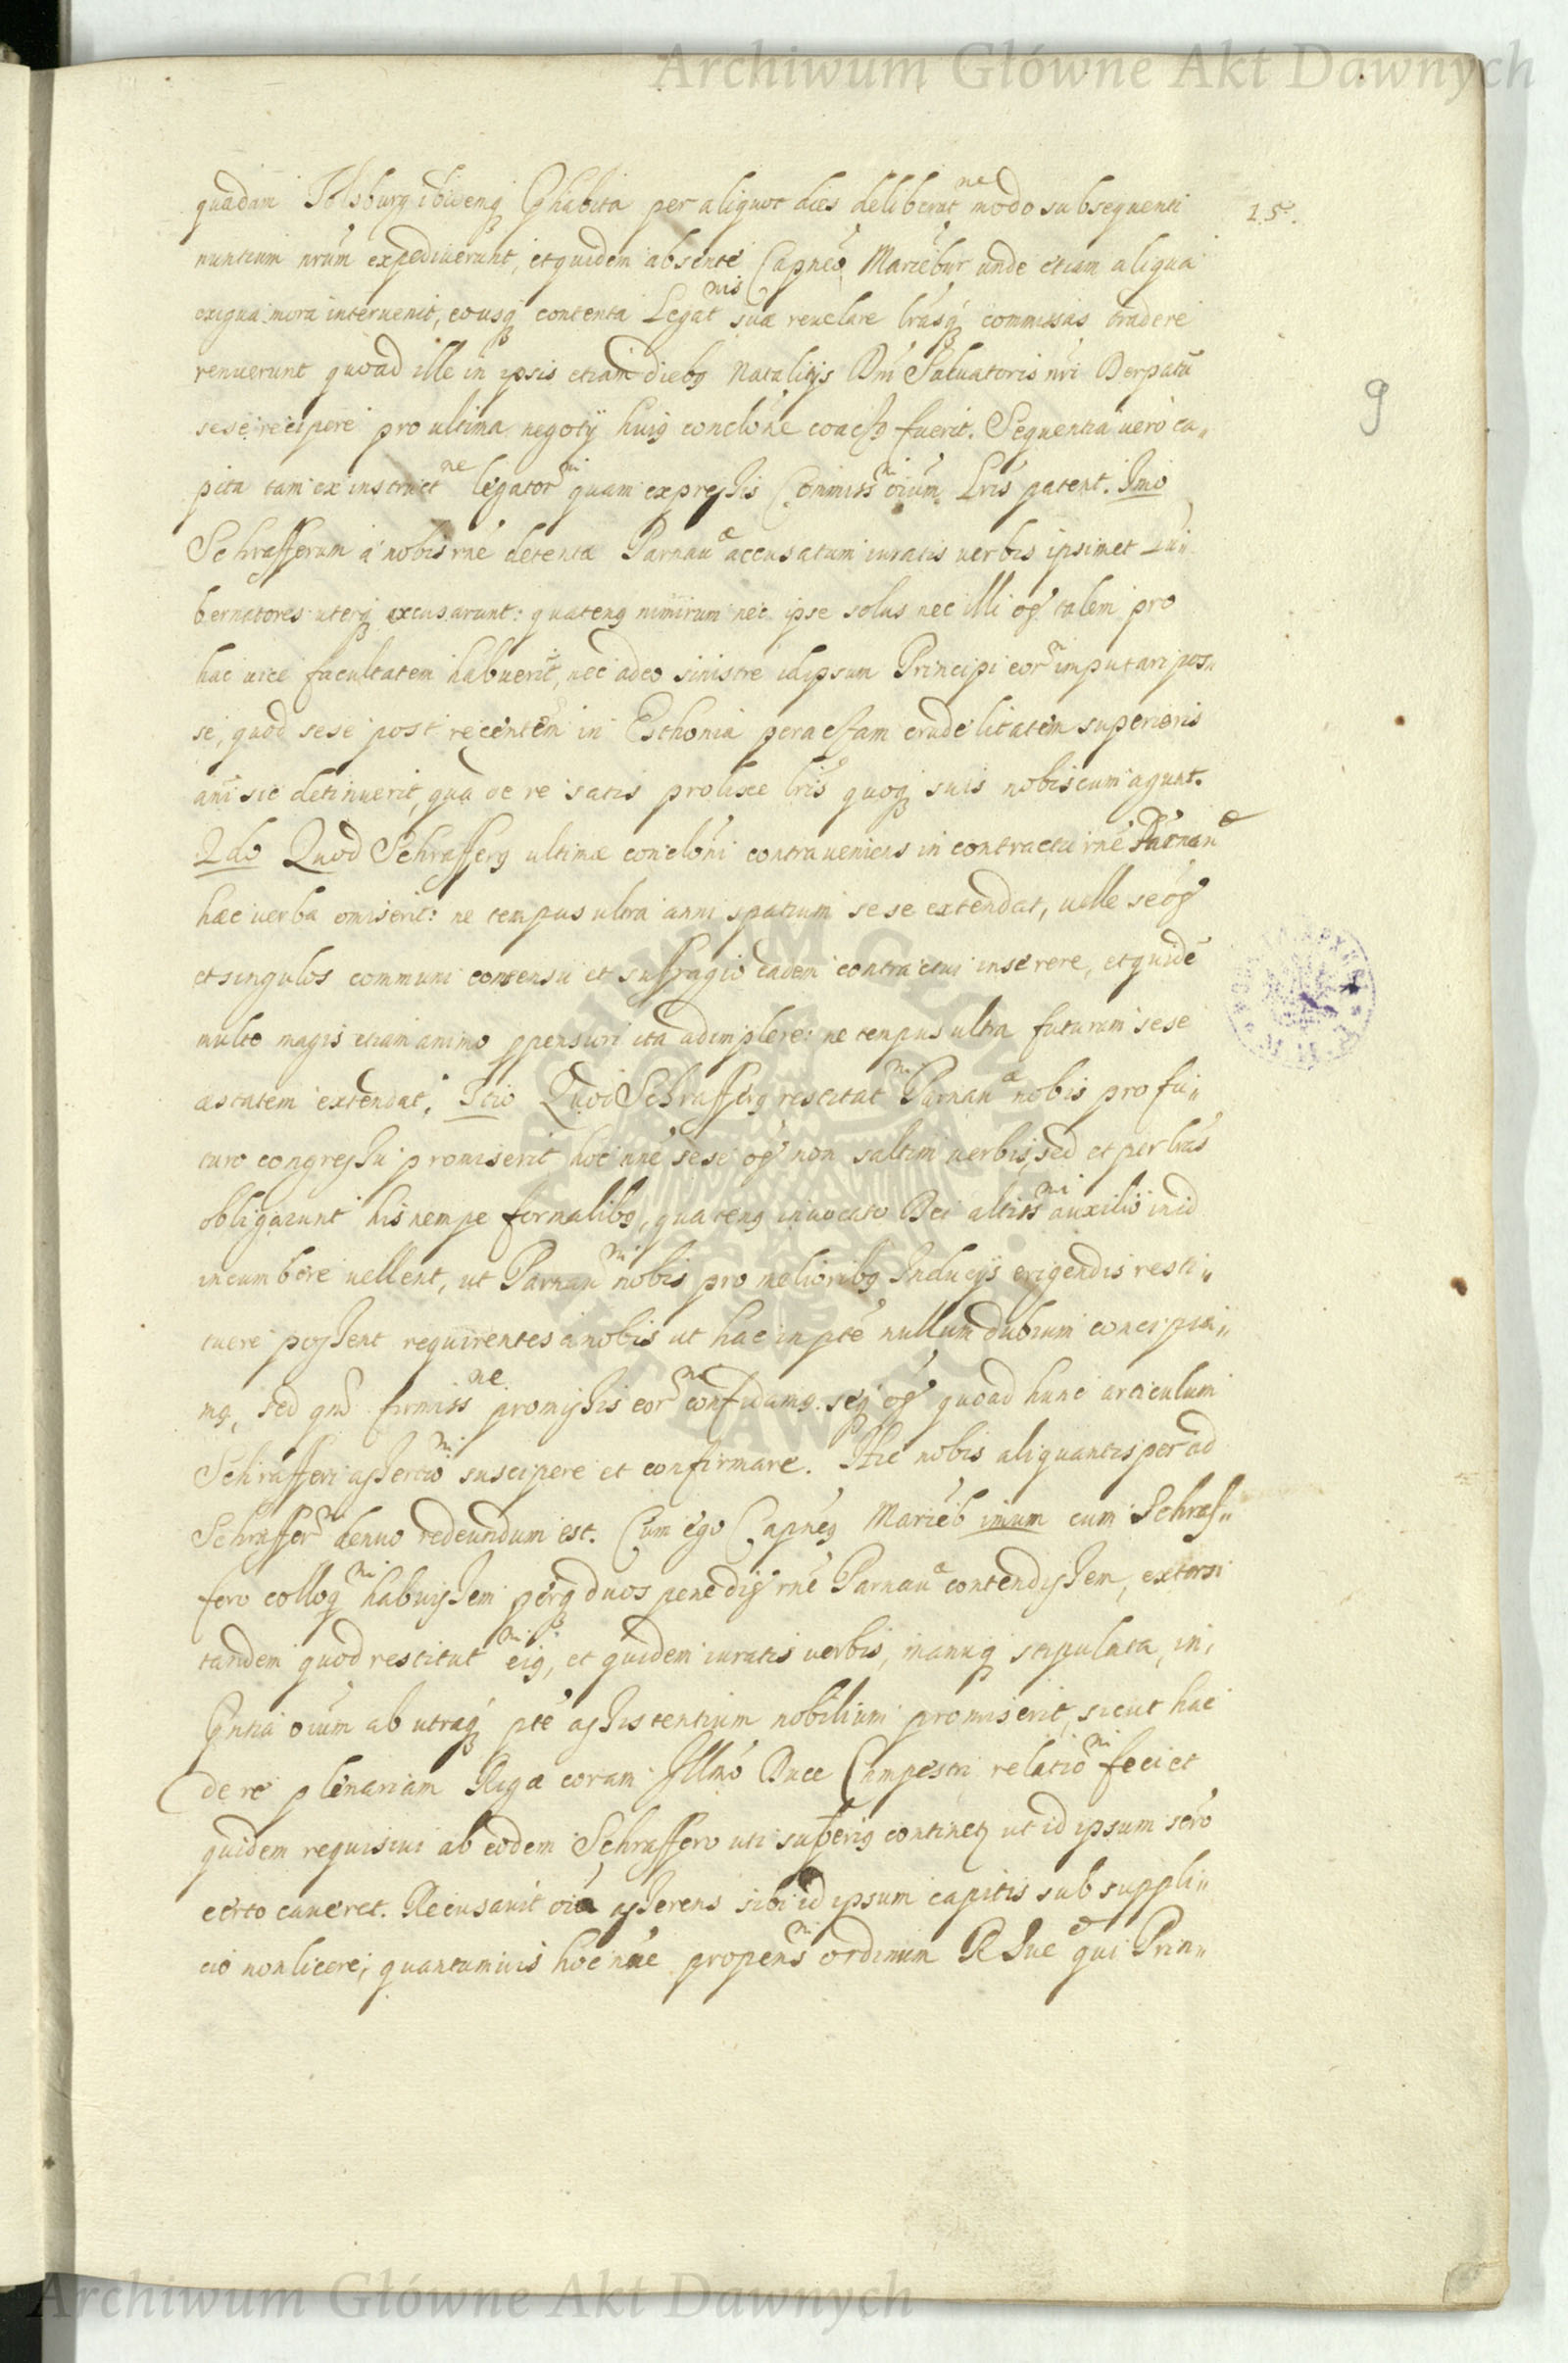 Archiwum Główne Akt Dawnych
15.
9
quadam per aliquot dies deliberat^ne modo subsequenti
nuntium nrum expediuerunt, et quidem absente Capneo Mariebur unde etiam aliqua
exigua mora interuenit, eousq contenta Legat^nis suae reuelare lrasq commissas tradere
renuerunt quoad ille in ipsis etiam diebq Natalitys Dni Saluatoris nri Derpatu
sese recipere pro ultima negoty huiq conclone coactq fuerit. Sequentia uero ca„
pita tam ex instruct^ne legator quam expressis Commiss oium Lris patent. Imo
Schrafferum a nobis rne detenta Parnau^a accusatum iuratis uerbis ipsimet Gu„
bernatores uterq excusarunt: quatenq nimirum nec ipse solus nec illi oes talem pro
hac uice facultatem habuerit, nec adeo sinistre idipsum Principi eor imputari pos„
se, quod sese post recentem in Esthonia peractam crudelitatem superioris
ani sic detinuerit, qua de re satis prolixe lris quoq suis nobiscum agunt.
2do Quod Schrafferq ultimae conclöni contraueniens in contractu rne Parnau^ae
haec uerba omiserit: ne tempus ultra anni spatium sese extendat, uelle se oes
et singulos communi consensu et suffragio eadem contractui inserere, et quide
multo magis etiam animo ppensiori ita adimplere: ne tempus ultra futuram sese
aestatem extendat. 3tio Quod Schrafferq restitut Parnau^a nobis pro fu„
turo congressu promiserit hoc nne sese oes non saltim uerbis, sed et per lras
obligarunt his nempe formalibq, quatenq inuocato Dei altiss^mi auxilio in id
incumbere uellent, ut Parnau nobis pro melioribq Inducys erigendis resti„
tuere possent requirentes a nobis ut hac in pte nullum dubium concipia„
mq, sed firmiss^ne promissis eor confidamq. seq oes quoad hunc articulum
Schrafferi assertio suscipere et confirmare. Hic nobis aliquantisper ad
Schraffer denuo redeundum est. Cum ego Capneq Marieb imum cum Schraf„
fero colloq habuissem perq duos pene dies rne Parnau^a contendissem, extorsi
tandem quod restitut eiq, et quidem iuratis uerbis, manuq stipulata, in
Pntia oium ab utraq pte assistentium nobilium promiserit, sicut hac
de re plenariam Rigae coram Illmo Duce Campestri relatio feci et
quidem requisiui ab eodem Schraffero uti superiq continet ut id ipsum
certo caueret. Recusauit oia asserens sibi id ipsum capitis sub suppli„
cio non licere, quantumuis hoc nne propens ordinum R Sue^ae qui Prin„
Archiwum Główne Akt Dawnych